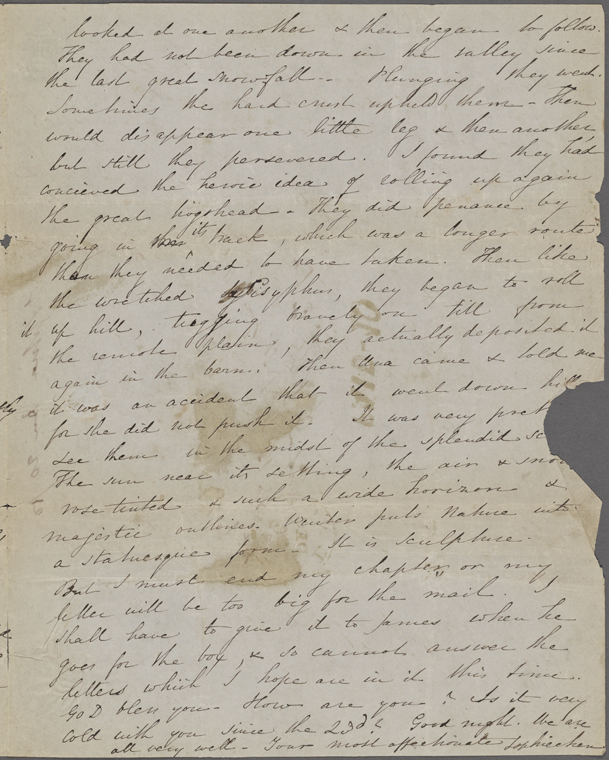 looked at one another & then began to follow.
They had not been down in the valley since
the last great snowfall-- Plunging they went.
Sometimes the hard crust upheld them - Then
would disappear one little leg & then another,
but still they persevered. I found they had
concieved the heroic idea of rolling up again
the great hogshead - They did penance by
going in its track, which was a longer route
than they needed to have taken. Then like
the wretched Sisyphus, they began to roll
it up hill, tugging bravely on till from
the remote plain, they actually deposited it
again in the barn. Then Una came & told me
it was an accident that it went down hill
for she did not push it. It was very pret
see them in the midst of the splendid sc
The sun near its setting, the air & snow
rose tinted & such a wide horizon &
majestic outlines. Winter puts Nature int
a statuesque form - It is sculpture.
But I must end my chapter or my
letter will be too big for the mail. I
shall have to give it to James when he
goes for the box, & so cannot answer the
letters which I hope are in it this time.
GOD bless you - How are you? Is it very
cold with you since the 23d? Good night. We are
all very well - Your most affectionate Sophiechen